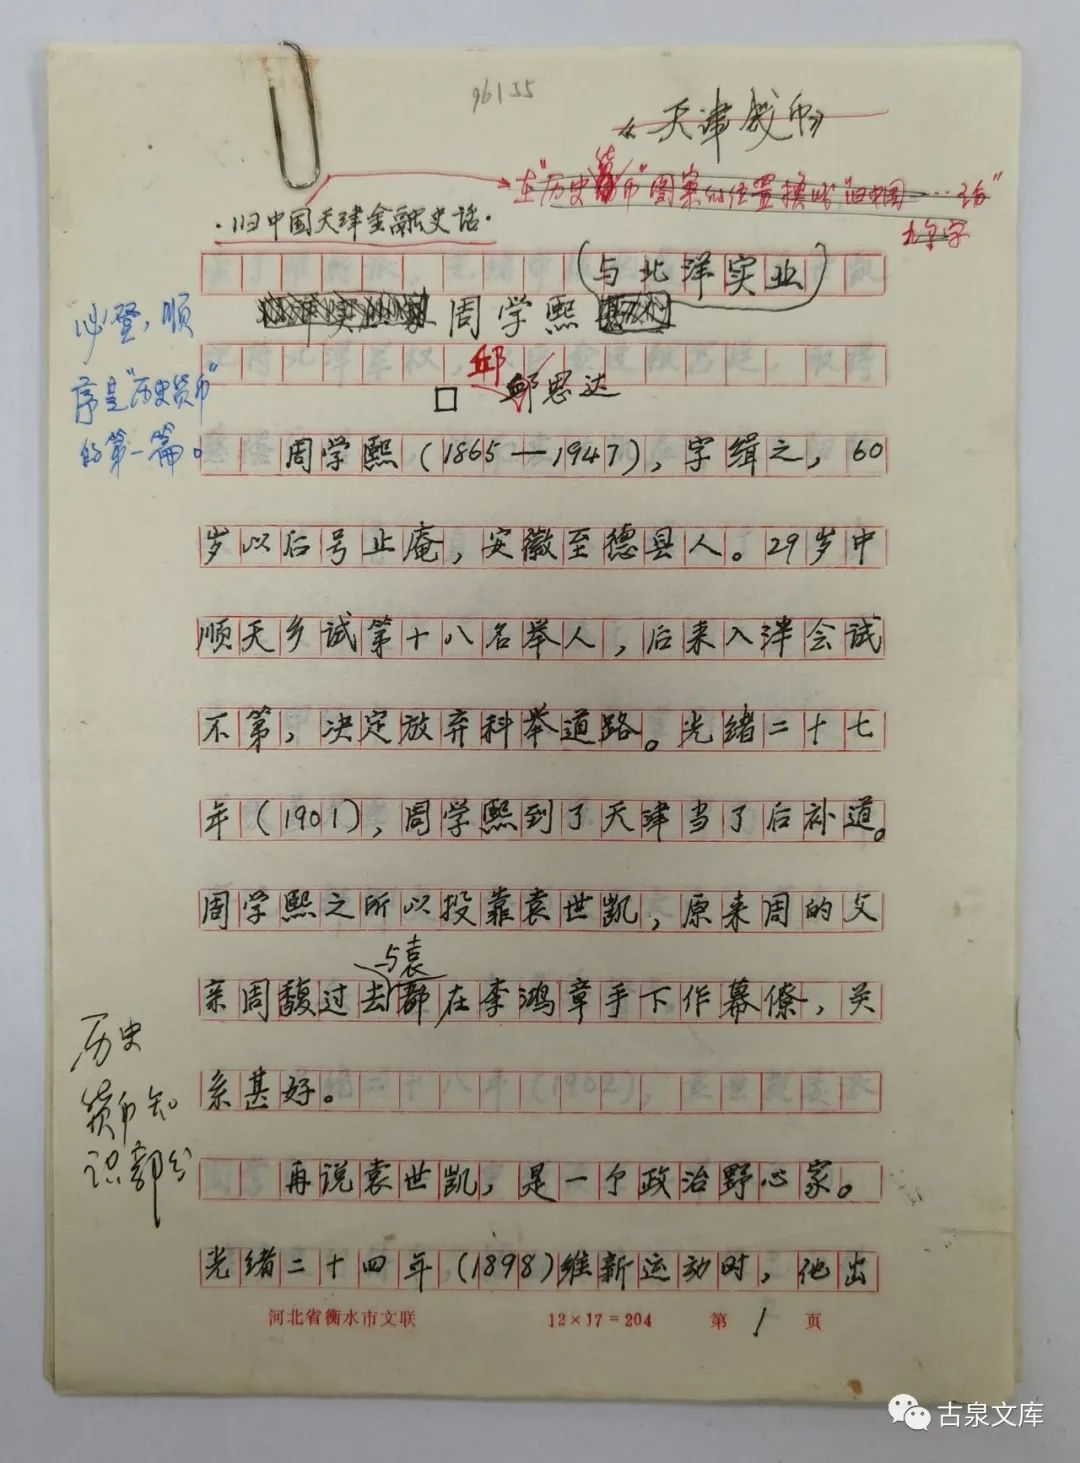 96135
《天津钱币》
在"历史货币"图案的位置换成"旧中国……话"
九个字
·旧中国天津金融史话·
与北洋实业
周学熙
邱
□ 邱思达
必登，顺
序是"历史货币"
的第一篇。
周学熙（1865—1947），字缉之，60
岁以后号止庵，安徽至德县人。29岁中
顺天乡试第十八名举人，后来入津会试
不第，决定放弃科举道路。光绪二十七
年（1901），周学熙到了天津当了后补道。
周学熙之所以投靠袁世凯，原来周的父
亲周馥过去与袁都在李鸿章手下作幕僚，关
系甚好。
再说袁世凯，是一个政治野心家。
光绪二十四年（1898）维新运动时，他出
历史
货币知
识部分
河北省衡水市文联 12×17=204 第1页
古泉文库